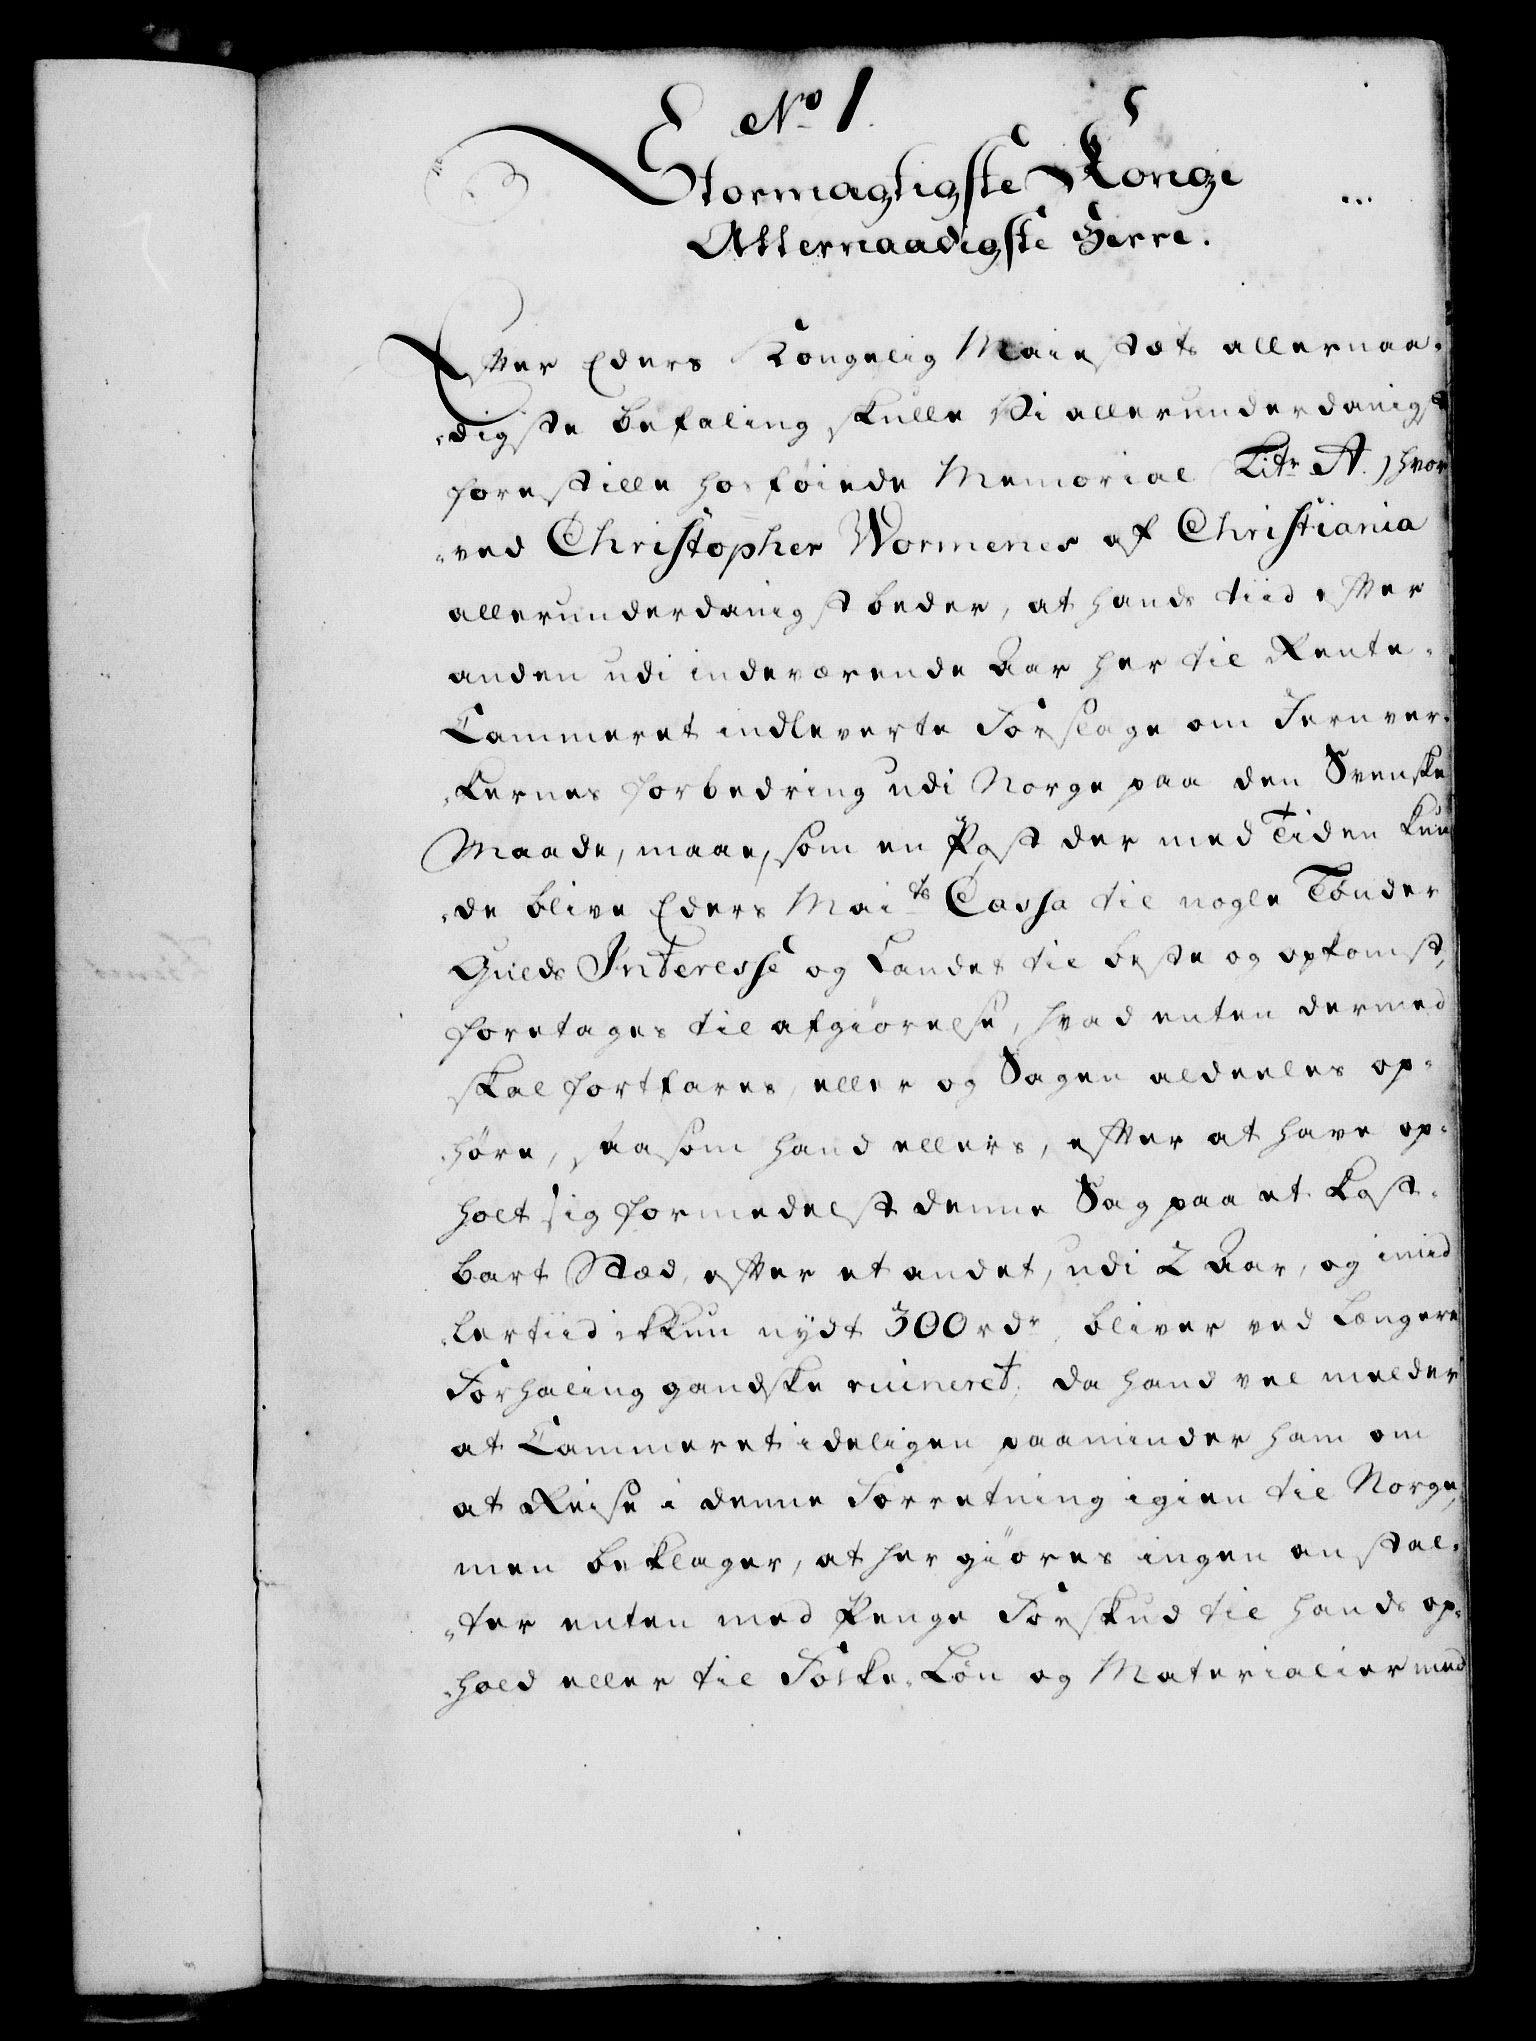 No 1.
Stormægtigste Konge
Allernaadigste Herre.
Efter Eders Kongelig Maiestæts allernaa-
-digste befaling skulle Vi allerunderdanigst
forestille hosføiede Memorial (Litr A.) hvor
-ved Christopher Wormenes af Christiania
allerunderdanigst beder, at hands tiid efter
anden udi indeværende Aar her til Rente-
Cammeret indleverte Forslage om Jernver-
-kernes forbedring udi Norge paa den Svenske
Maade, maae, som en Post der med Tiden kun
-de blive Eders Maits Cassa til nogle Tønder
Gulds Interesse og Landet til beste og opkomst,
foretages til afgiørelse, hvad enten dermed
skal fortfares, eller og Sagen aldeeles op-
-høre, saasom hand ellers, efter at have op-
holt sig formedelst denne Sag paa et kost-
bart Stæd, efter et andet, udi 2 Aar, og imid
-lertiid ikkun nydt 300 rdr, bliver ved Længere
Forhaling gandske ruineret; da hand vel melder
at Cammeret ideligen paaminder ham om
at Reise i denne Forretning igien til Norge,
men beklager, at her giøres ingen anstal-
-ter enten med Penge Forskud til hands op-
-hold eller til Folke-Løn og Materialier med